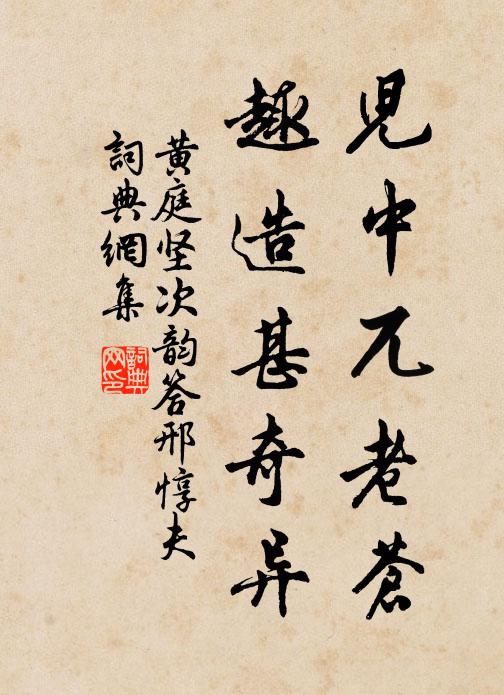 兒中兀老蒼
趣造甚奇异
黄庭坚次韵答邢惇夫
詞典網集
詞典
网印